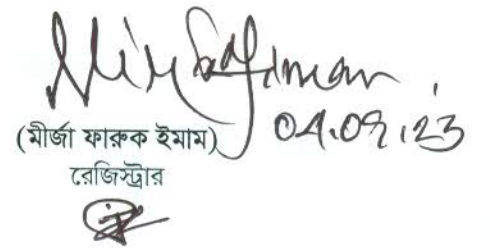 04.09.23
(মীর্জা ফারুক ইমাম)
রেজিস্ট্রার